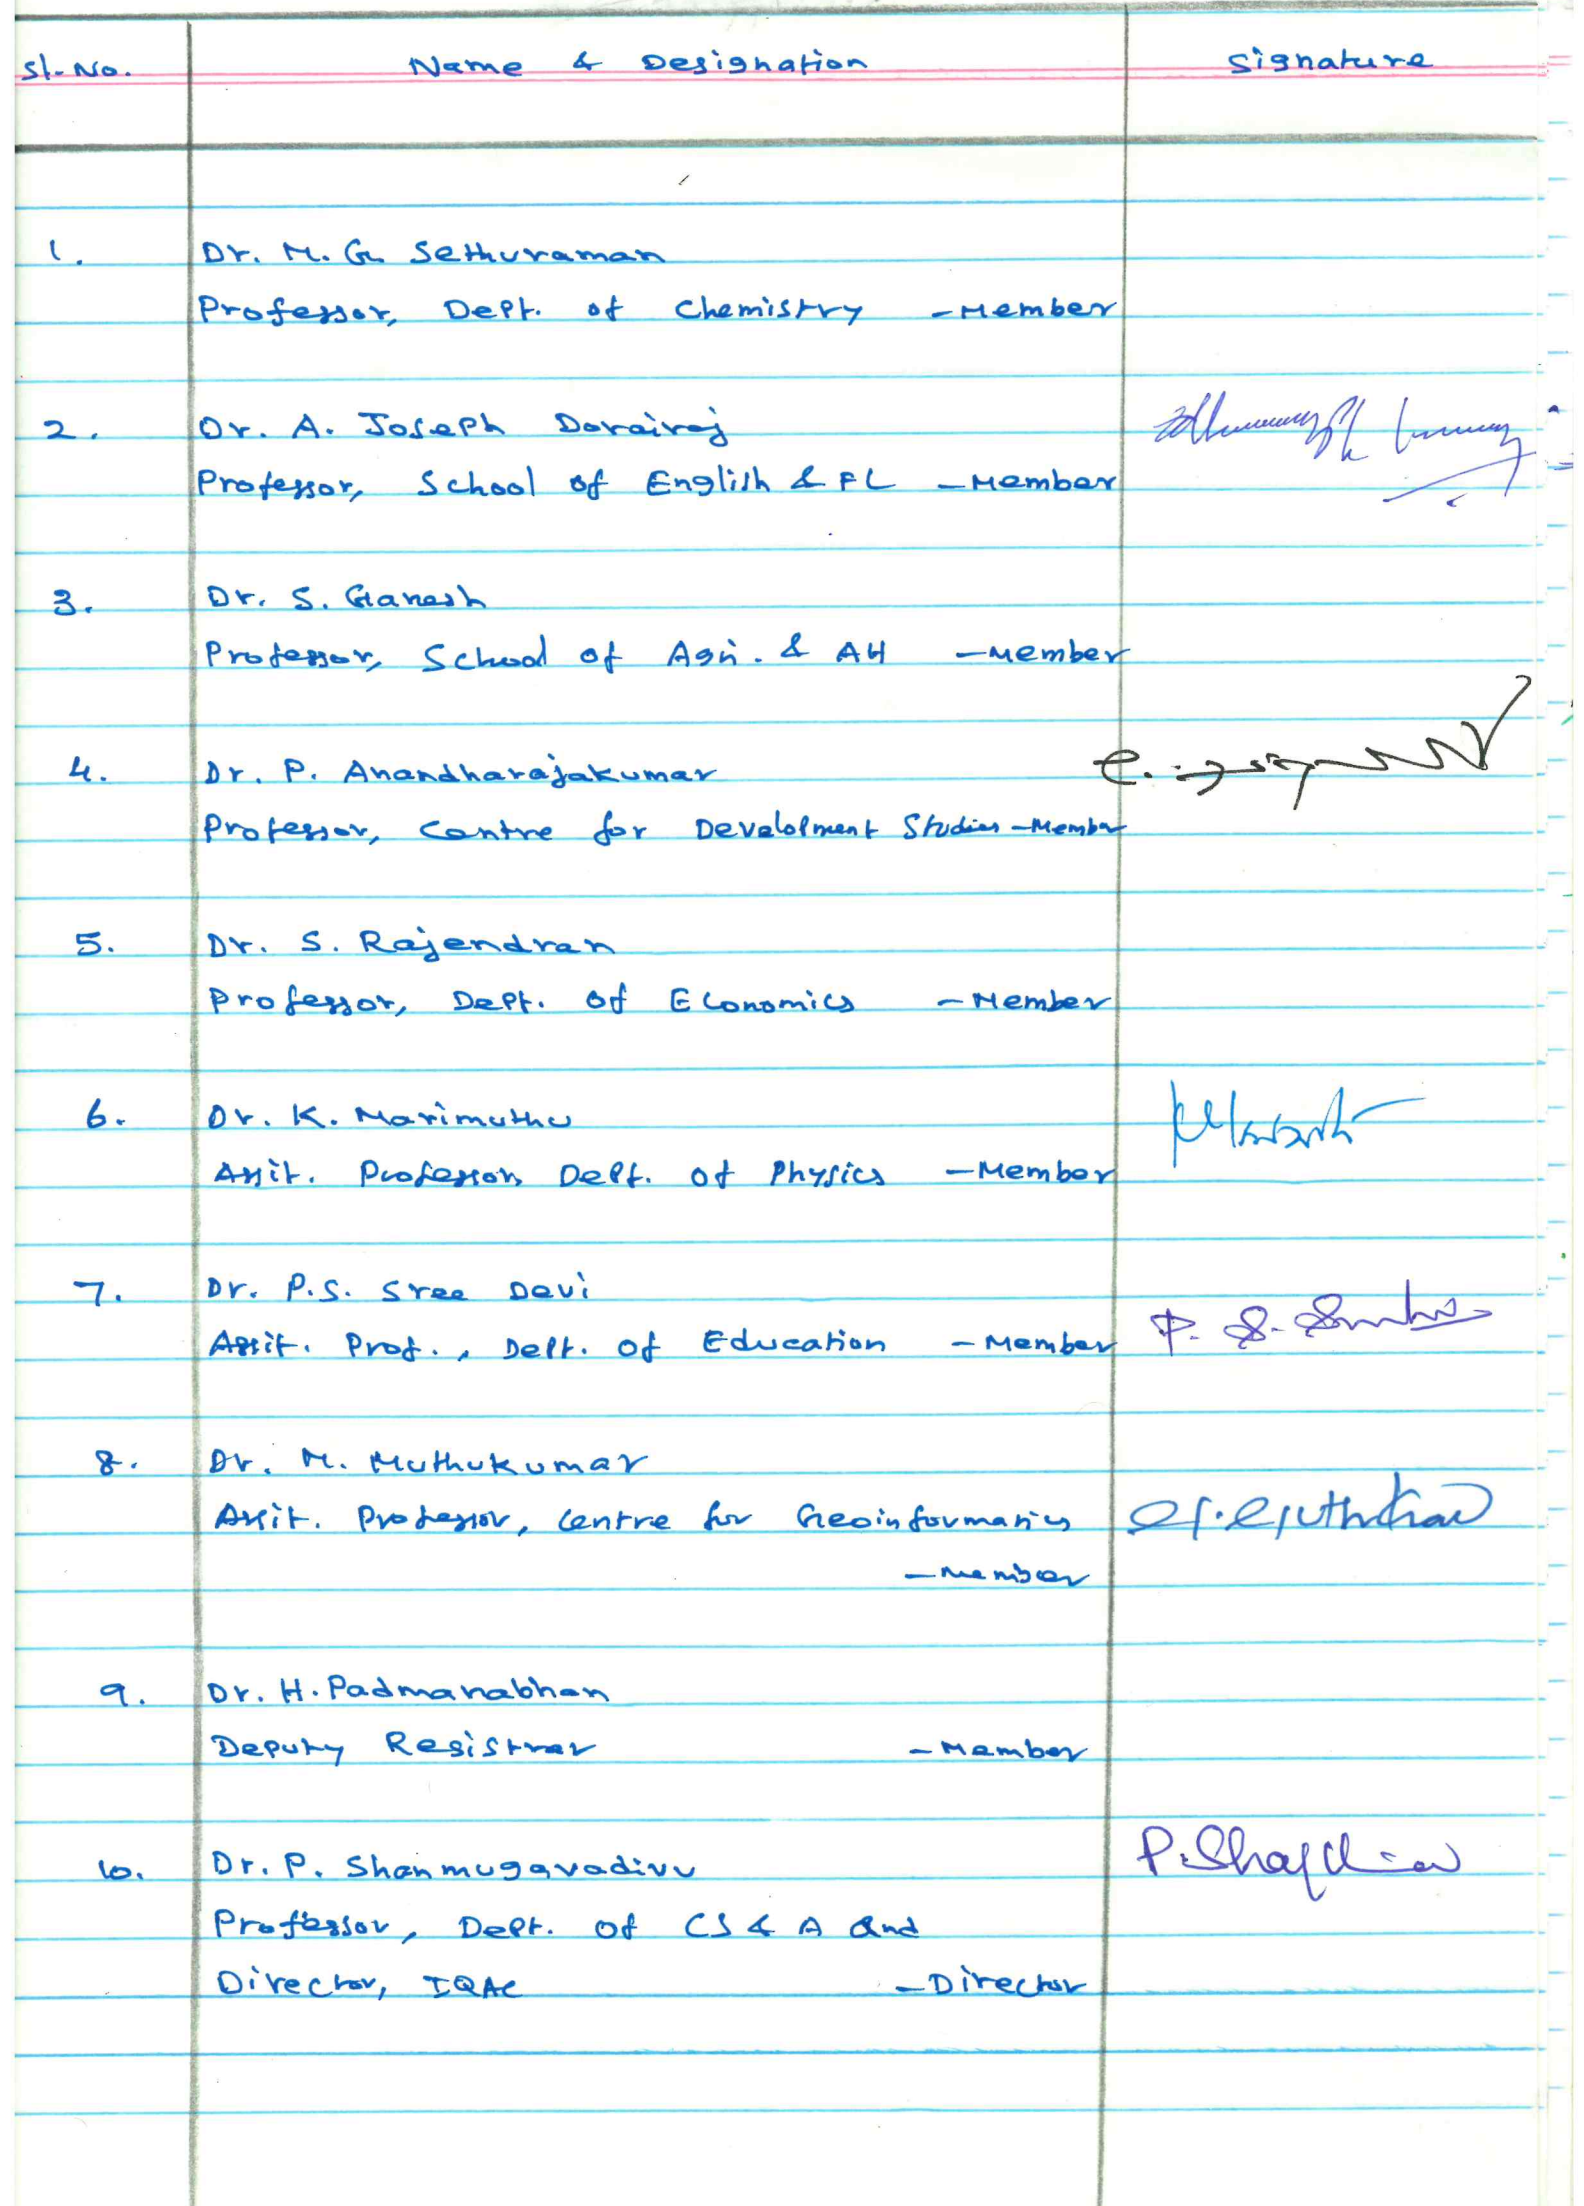 Sl. No. Name & Designation Signature
1. Dr. M. G. Sethuraman
Professor, Dept. of Chemistry - Member
2. Dr. A. Joseph Dorairaj
Professor, School of English & FL - Member
3. Dr. S. Ganesh
Professor, School of Agri. & AH - Member
4. Dr. P. Anandharajakumar
Professor, Centre for Development Studies - Member
5. Dr. S. Rajendran
Professor, Dept. of Economics - Member
6. Dr. K. Marimuthu
Asst. Professor, Dept. of Physics - Member
7. Dr. P.S. Sree Devi
Asst. Prof., Dept. of Education - Member
8. Dr. M. Muthukumar
Asst. Professor, Centre for Geoinformatics
- Member
9. Dr. H. Padmanabhan
Deputy Registrar - Member
10. Dr. P. Shanmugavadivu
Professor, Dept. of CS & A and
Director, IQAC - Director